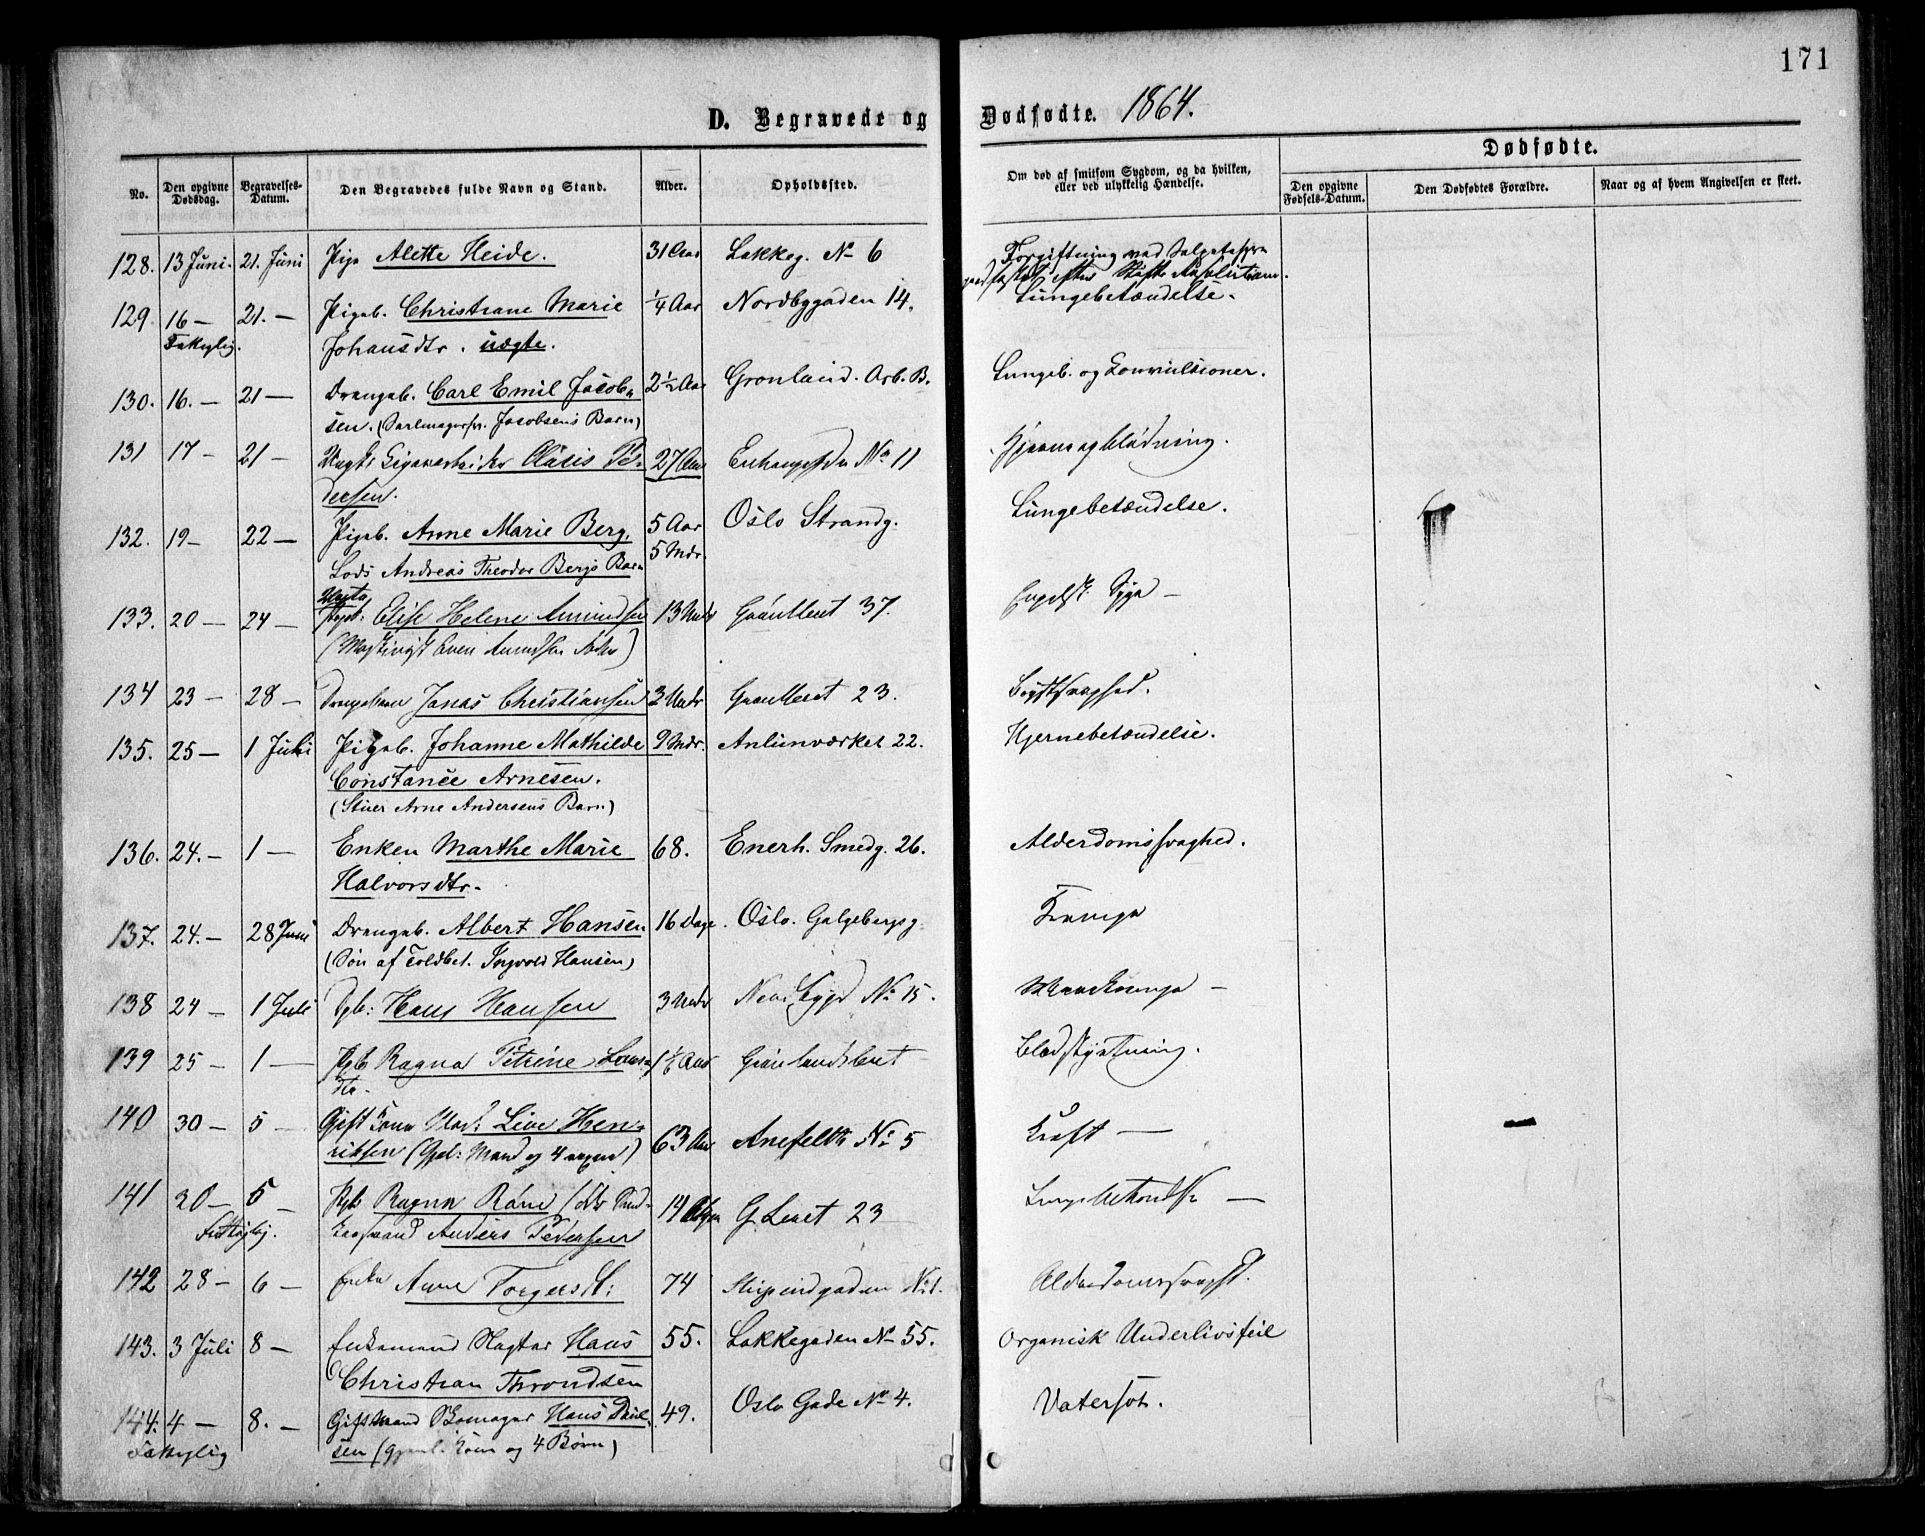 171
D. Begravede og Dødfødte. 1864.
No.
Den opgivne Dødsdag.
Begravelses-Datum.
Den Begravedes fulde Navn og Stand.
Alder.
Opholdssted.
Om død af smitsom Sygdom, og da hvilken, eller ved ulykkelig Hændelse.
Dødfødte.
Den opgivne Fødsels-Datum.
Den Dødfødtes Forældre.
Naar og af hvem Angivelsen er sleet.
128. 13 Juni. 21. Juni Pige Alette Heide. 31 Aar Lakkeg. No 6 Forgiftning ved
129. 16 — 21. — Pigeb. Christiane Marie ¼ Aar Nordbygaden 14. Lungebetændelse.
Johansdtr. uægte.
130. 16. — 21 — Drengeb. Carl Emil Jacob- 2½ Aar Grønland. Arb. B. Lungeb. og Convulsioner.
sen. (Jacobsens Barn)
131 17 — 21 — Olasis Pe- 27 Aar No 11
dersen.
132. 19 — 22 — Pigeb. Anne Marie Berg. 5 Aar Oslo Strandg. Lungebetændelse.
Lods Andreas Theodor Bergs Barn 5 Mdr.
133. 20 — 24 — Elise Helene Amundsen 13 Mdr Grønlleret 37. Engelsk Syge —
134 23 — 28 — Jonas Christiansen 3 Mdr Grønlleret 23. Brystsvaghed.
135. 25 — 1 Juli Pigeb. Johanne Mathilde 9 Mdr. Anlunværket 22. Hjernebetændelse.
Constance Arnesen.
(Stuer Arne Andersens Barn)
136. 24. — 1 — Enken Marthe Marie 68. Enerh. Smedg. 26. Alderdomssvaghed.
Halvorsdtr.
137. 24. — 28 Juni Drengeb. Albert Hansen 16 Dage. Oslo. Galgebergsg. Krampe
(Søn af Toldbet. Ingvold Hansen)
138 24 — 1 Juli Hans Hansen 3 Mdr No 15. —
139 25 — 1 — Pgb. Ragna Petrine Grønlandsleret Blodstyrtning.
140 30 — 5 — Gift Kone Live Hen- 63 Aar Anefeltk No 5 Kræft —
riksen (Mand og 4)
141 30 — 5 — Pgb. Ragna 14 G. Leret 23 —
Anders Pedersen
142 28 — 6 — Enke Anne Torgersdt: 74 Stupindgaden No 1. Alderdomssvagh.
143. 3 Juli 8 — Enkemand Slagter Hans 55. Lakkegaden No 55. Organisk Underlivsfeil
Christian Throndsen
144. 4 — 8. — Giftmand Skomager Hans Paul- 49. Oslo Gade No 4. Vatersot.
sen (Kone og 4 Børn)